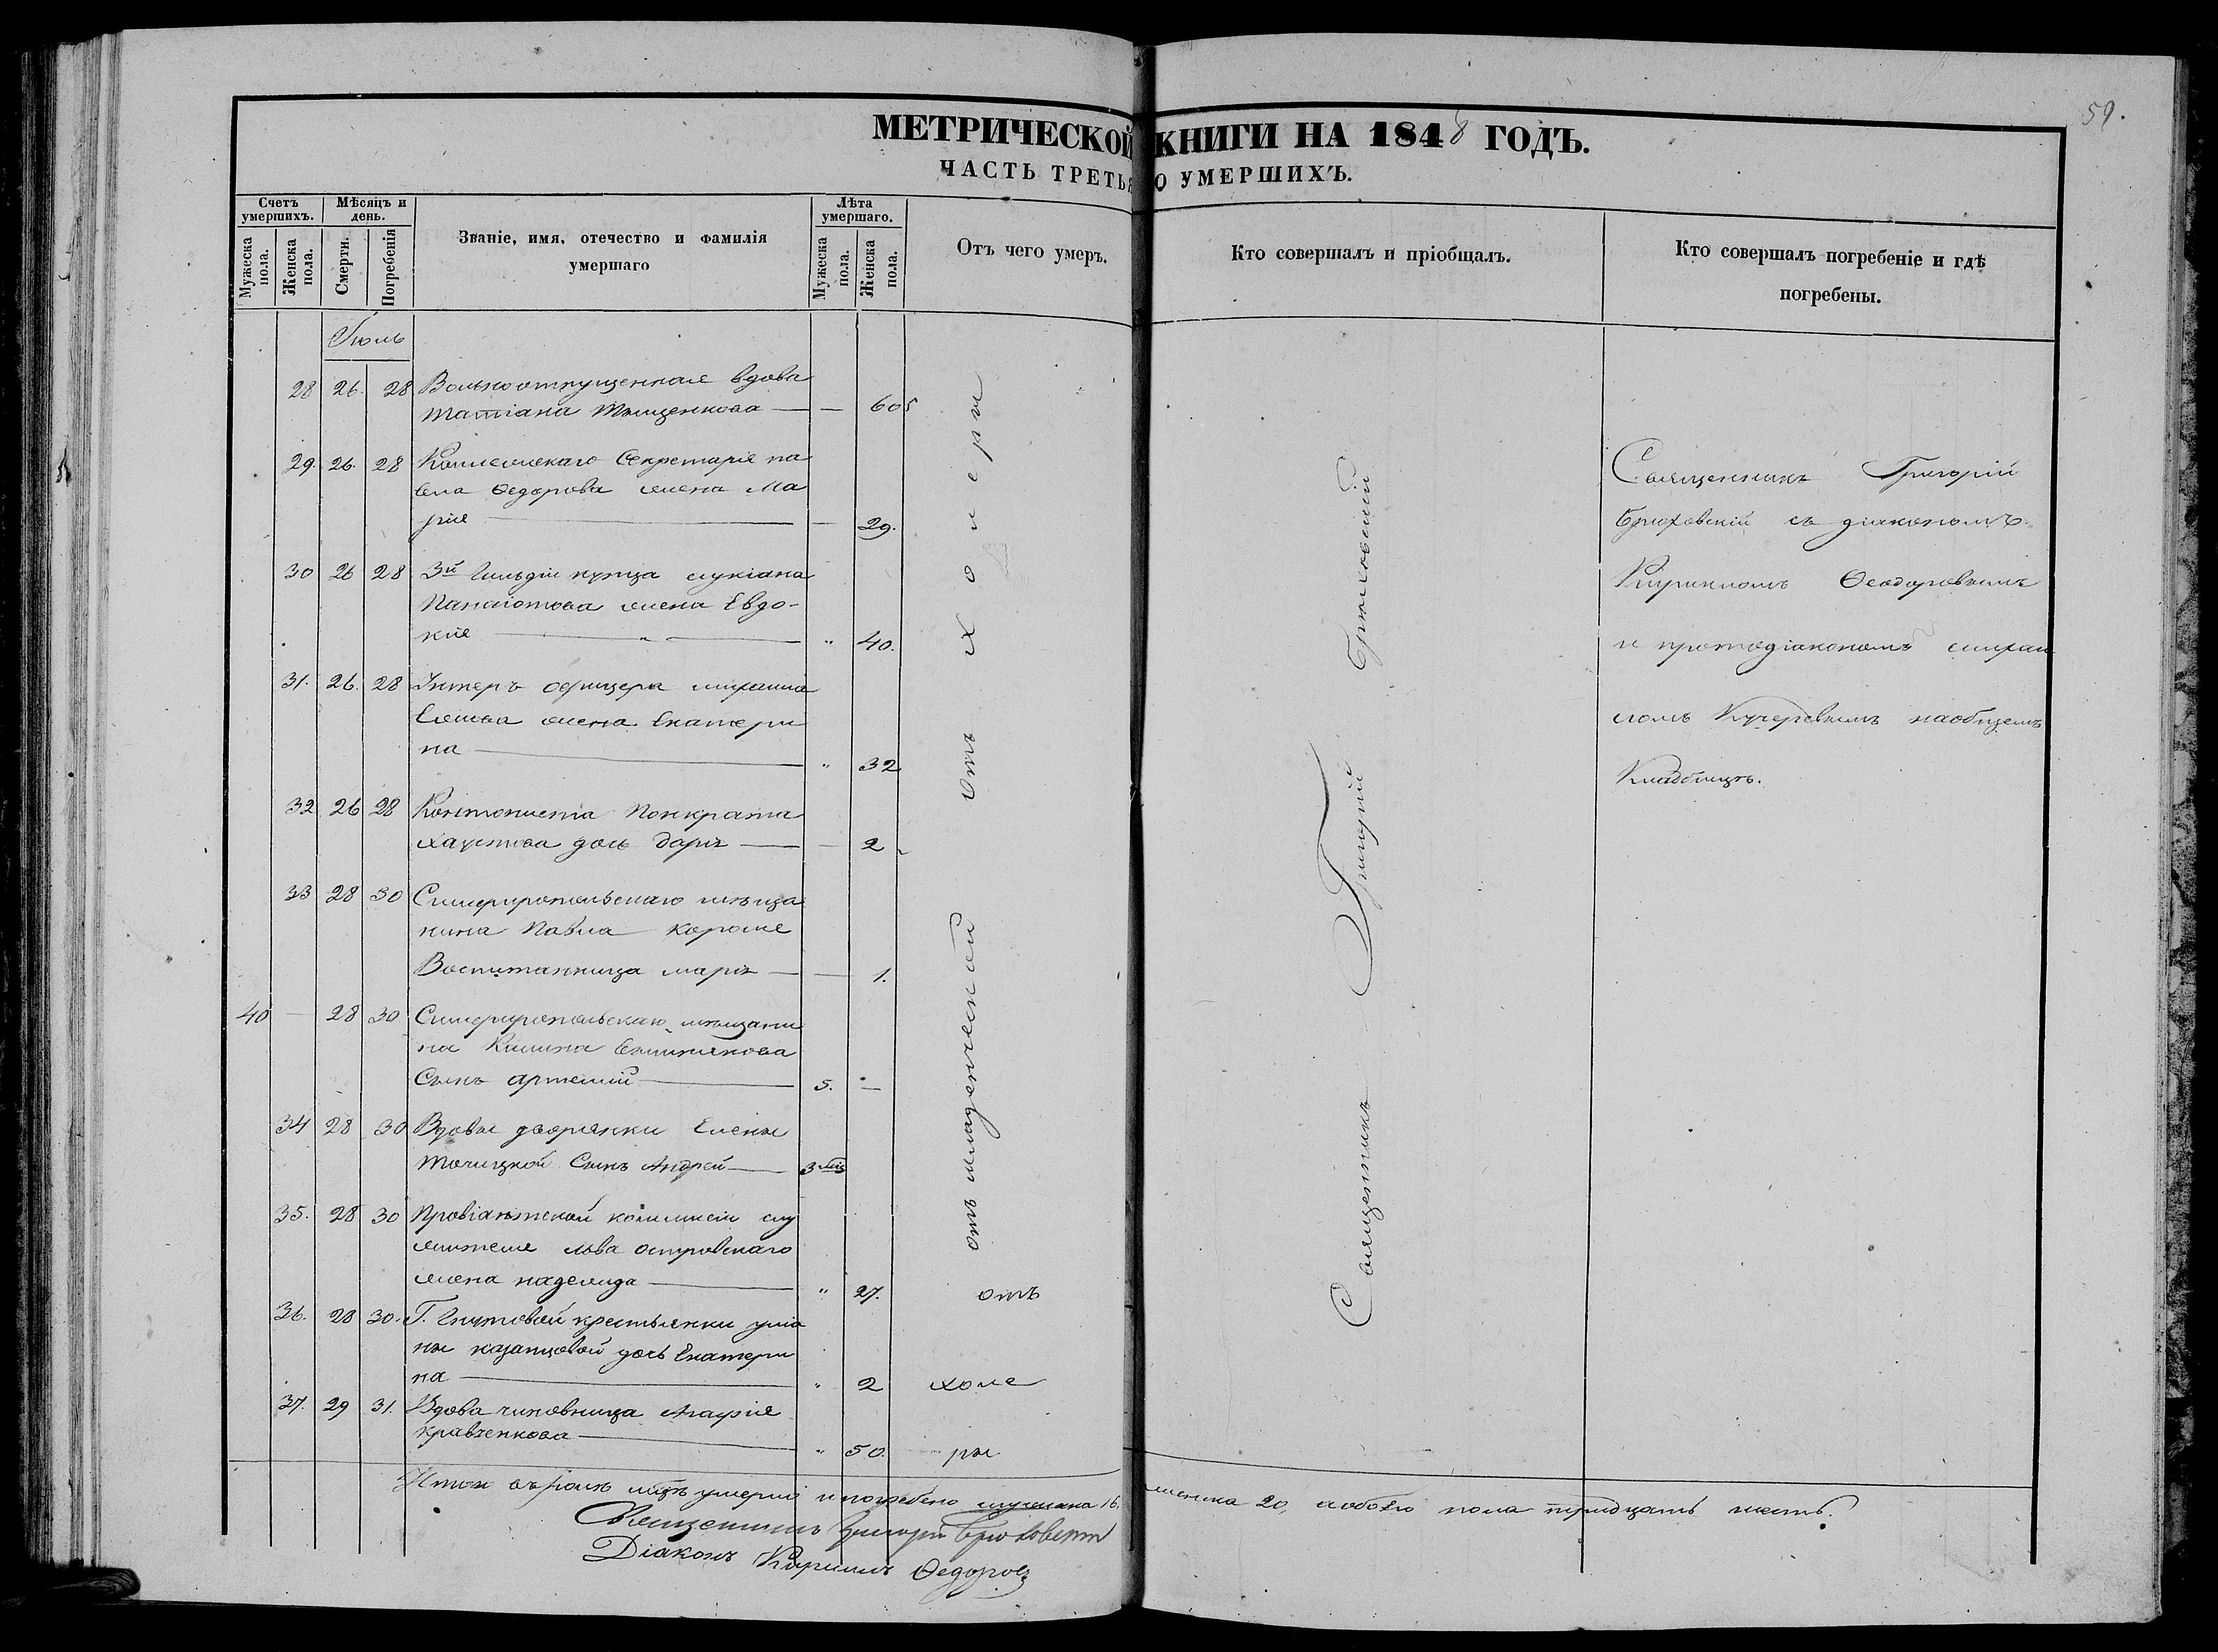 59.
МЕТРИЧЕСКОЙ КНИГИ НА 1848 ГОДЪ.
ЧАСТЬ ТРЕТЬЯ О УМЕРШИХЪ.
Счетъ умершихъ.
Мѣсяцъ и день.
Званіе, имя, отечество и фамилія умершаго
Лѣта умершаго.
Отъ чего умеръ.
Кто совершалъ и пріобщалъ.
Кто совершалъ погребеніе и гдѣ погребены.
Мужеска пола.
Женска пола.
Смерти.
Погребенія
Мужеска пола.
Женска пола.
Іюль
28 26. 28 Вольноотпущенная вдова
Татіана Тищенкова — — 60
29. 26. 28 Секретаря Па
вла Ѳедорова жена Ма
рія — — 29.
30 26 28 3й гильдіи купца Лукіана
Панаіотова жена Евдо-
кія — " 40.
31. 26. 28 Унтеръ офицера Михаила
жена Екатери
на — " 32
32 26 28 Кантониста Понкрата
Хаустова дочь Дарія — — 2
33 28 30 Симферопольскаго мѣща
нина Павла
Воспитанница Марія — — 1.
40 — 28 30 Симферопольскаго мѣщани
на
Сынъ Артемій — 5. —
34 28 30 Вдовы дворянки Елены
Сынъ Андрей — 3 мѣс
35. 28 30 Провіантской коммисіи слу
жителя Льва Островскаго
жена Надежда — " 27.
36. 28 30. Г. крестьянки Улиа
ны Казанцовой дочь Екатери
на — " 2
37. 29 31. Вдова чиновница
Кравченкова — " 50.
Отъ холеры
отъ младенческой
отъ
холе
ры
Священникъ Григорій Брюховскій
Священникъ Григорій
Брюховскій съ діакономъ
Кирилломъ Ѳеодоровымъ
и протодіакономъ Михаи
ломъ Кучеровымъ на общемъ
Кладбищѣ.
Итого въ Іюлѣ мѣсяцѣ умерло и погребено мужеска 16, женска 20, а обоего пола тридцать шесть.
Священникъ Григорій
Діаконъ Кириллъ Ѳедоровъ